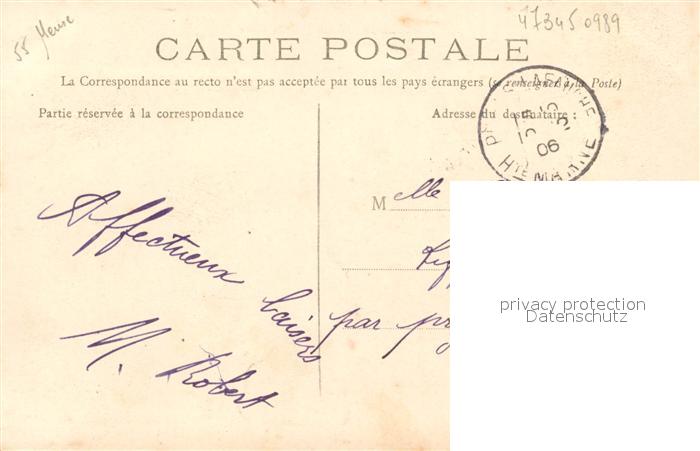 55 Meuse
473450989
CARTE POSTALE
La Correspondance au recto n'est pas acceptée par tous les pays étrangers (se renseigner à la Poste)
Partie réservée à la correspondance
Adresse du destinataire:
06
HTE MARNE
M elle
par
Affectueux baisers
M. Robert
privacy protection
Datenschutz